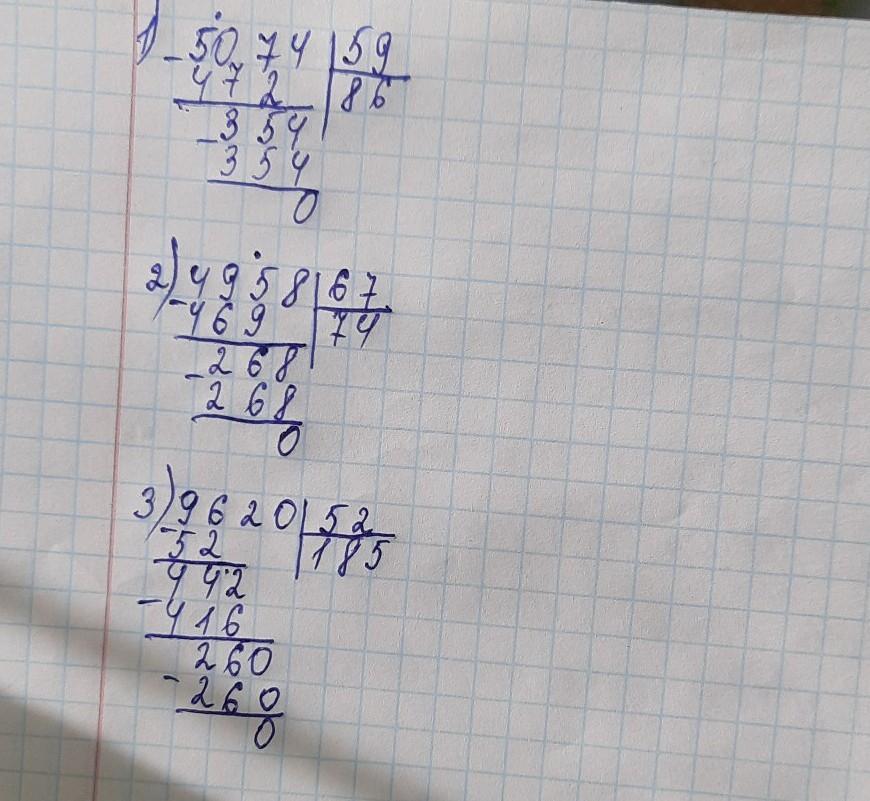 1) - 5074 | 59
472 | 86
- 354
354
0
2) - 4958 | 67
469 | 74
- 268
268
0
3) - 9620 | 52
52 | 185
- 442
416
- 260
260
0